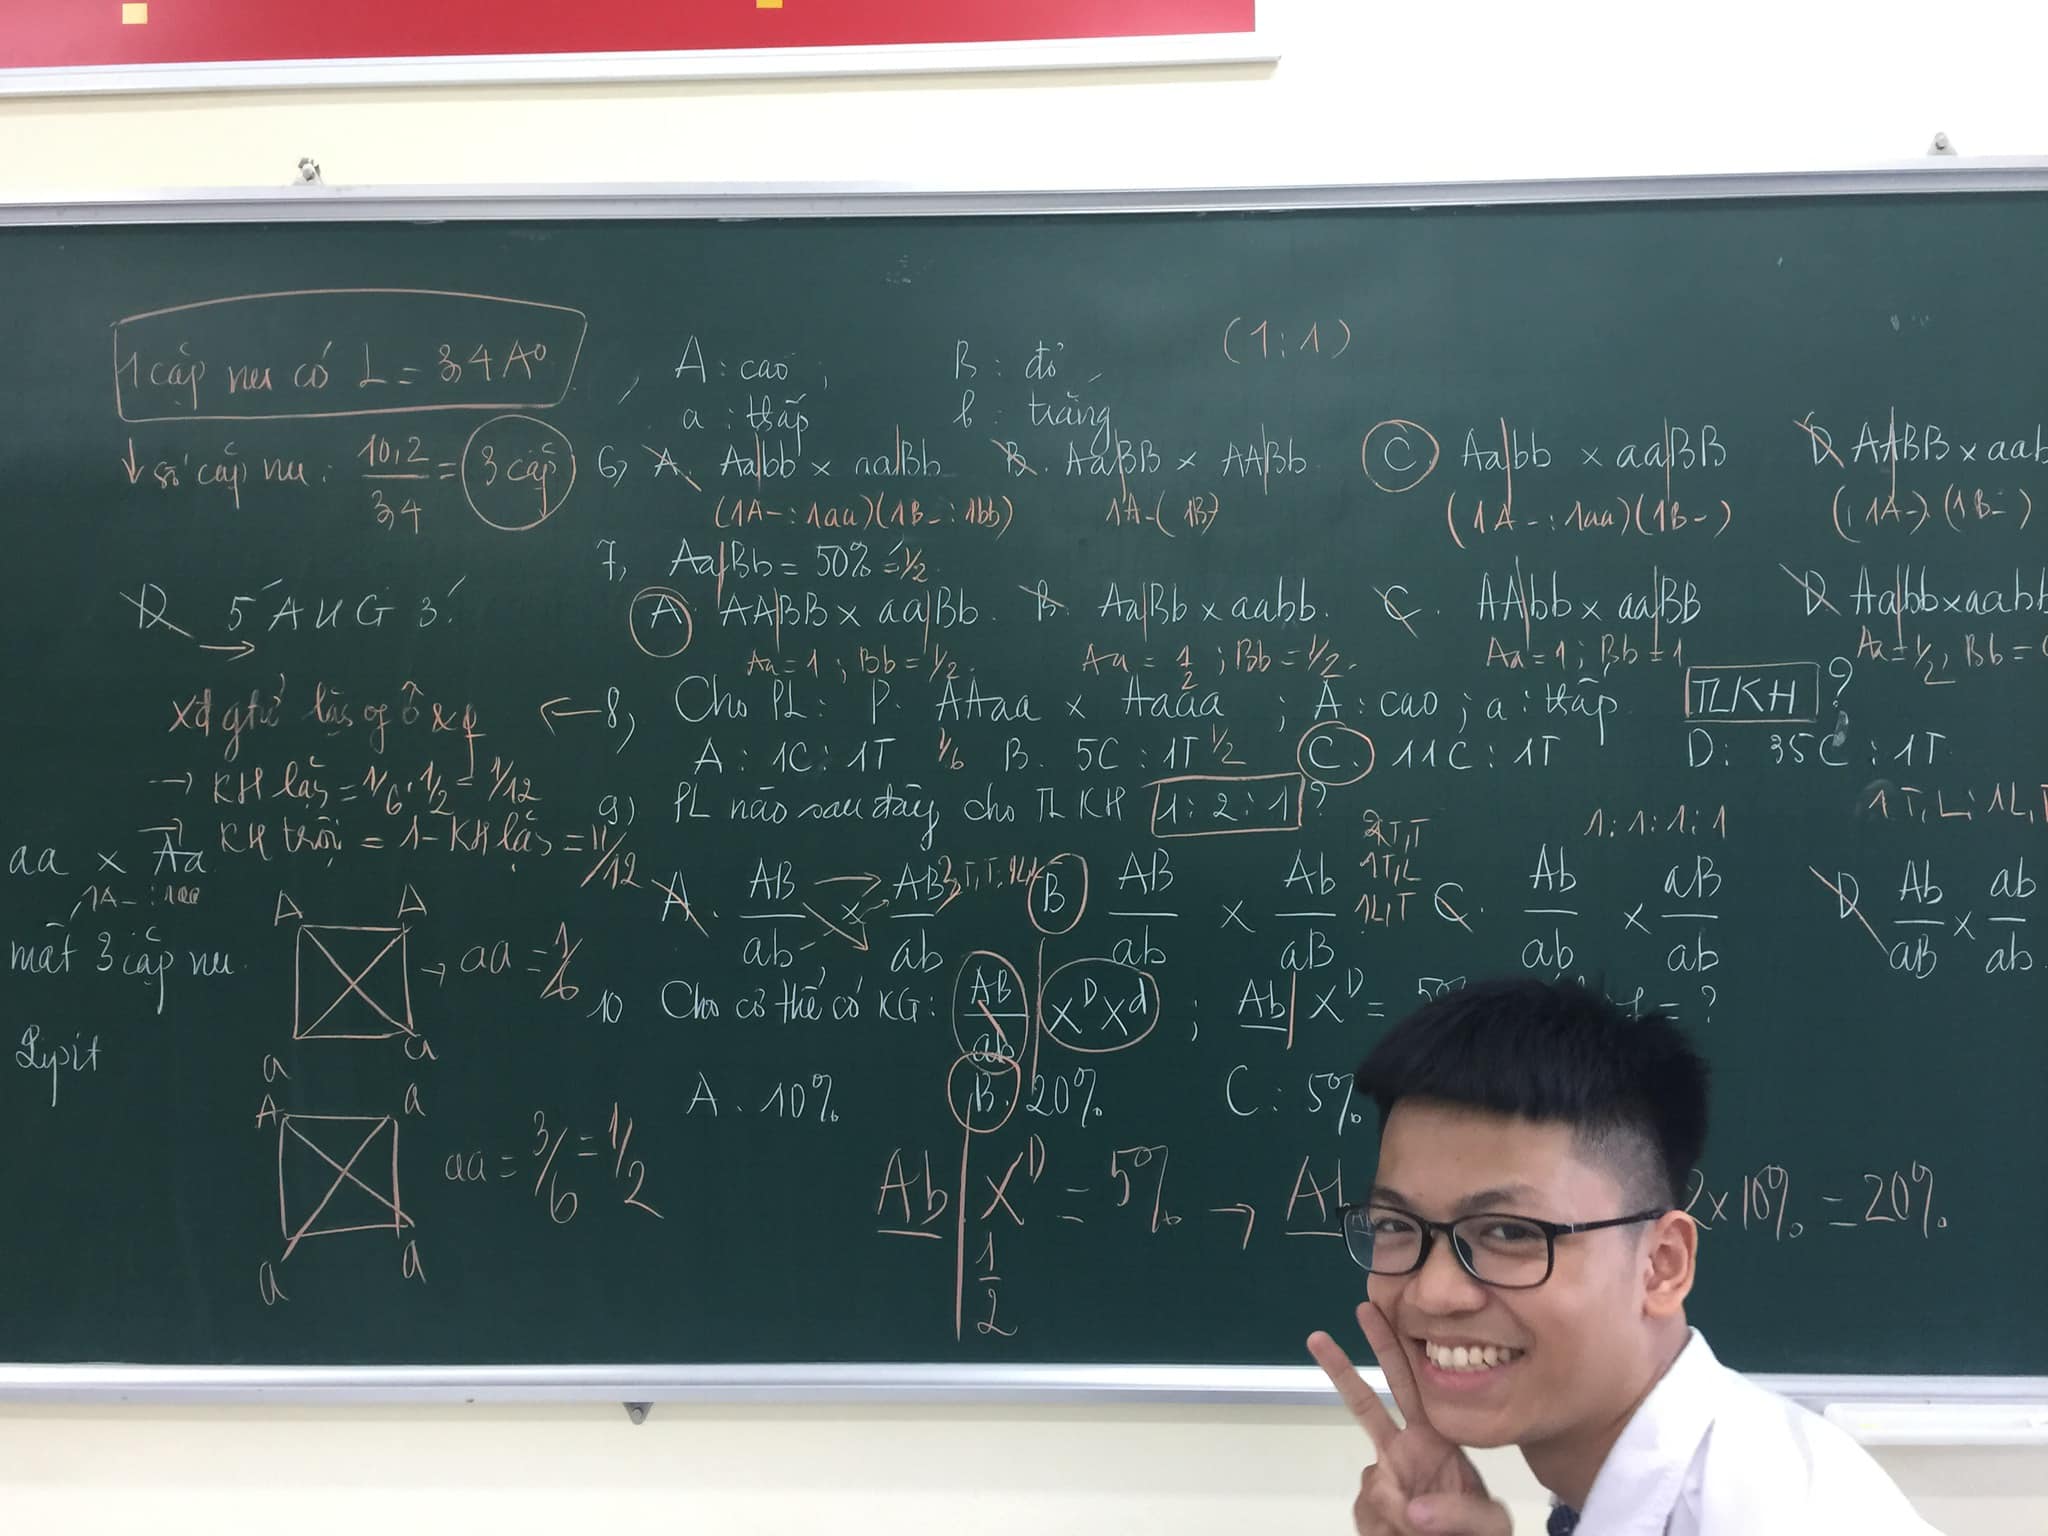 1 cặp nu có L = 3,4 A⁰
↓ số cặp nu: 10,2/3,4 = 3 cặp
D 5' AUG 3'
→
xđ gtử lặn of ô & q
→ KH lặn = 1/6 . 1/2 = 1/12
→ KH trội = 1 - KH lặn = 11/12
aa x Aa
1A- : 1aa
mất 3 cặp nu
Lipit
A A
a a
→ aa = 1/6
A a
a a
aa = 3/6 = 1/2
A : cao ; B : đỏ (1:1)
a : thấp b : trắng
6, A. Aabb x aaBb B. AaBB x AABb C Aabb x aaBB D AABB x aab
(1A- : 1aa)(1B- : 1bb) 1A-(1B-) (1A- : 1aa)(1B-) (1A-).(1B-)
7, AaBb = 50% = 1/2
A. AABB x aaBb. B. AaBb x aabb. C. AAbb x aaBB D Aabb x aabb
Aa = 1 ; Bb = 1/2. Aa = 1/2 ; Bb = 1/2. Aa = 1 ; Bb = 1 Aa = 1/2, Bb =
8, Cho PL: P. AAaa x Aaaa ; A : cao ; a : thấp TLKH ?
A : 1C : 1T 1/6 B. 5C : 1T 1/2 C. 11C : 1T D: 35C : 1T
9, PL nào sau đây cho TLKH 1 : 2 : 1 ?
2T,T
1T,L
1L,T
1:1:1:1
1T,L : 1L,T
A. AB/ab x AB/ab B AB/ab x Ab/aB C. Ab/ab x aB/ab D Ab/aB x ab/ab
10 Cho cơ thể có KG: AB/ab XᴰXᵈ ; Ab Xᴰ = f = ?
A. 10% B. 20% C: 5%
Ab Xᴰ = 5% → 2x10% = 20%
1/2